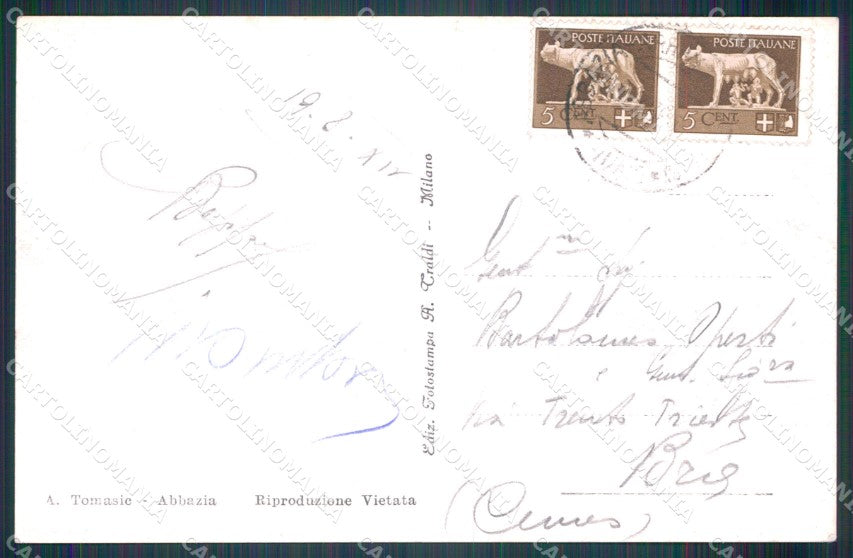 POSTE ITALIANE
5 CENT.
POSTE ITALIANE
5 CENT.
19. 2. XIV
Beppe
Gent.mo Sig.
Bartolomeo Operti
e Gent. Sig.ra
Via Trento Trieste
Bra
(Cuneo)
Ediz. Fotostampa R. Traldi -- Milano
A. Tomasic - Abbazia Riproduzione Vietata
CARTOLINOMANIA